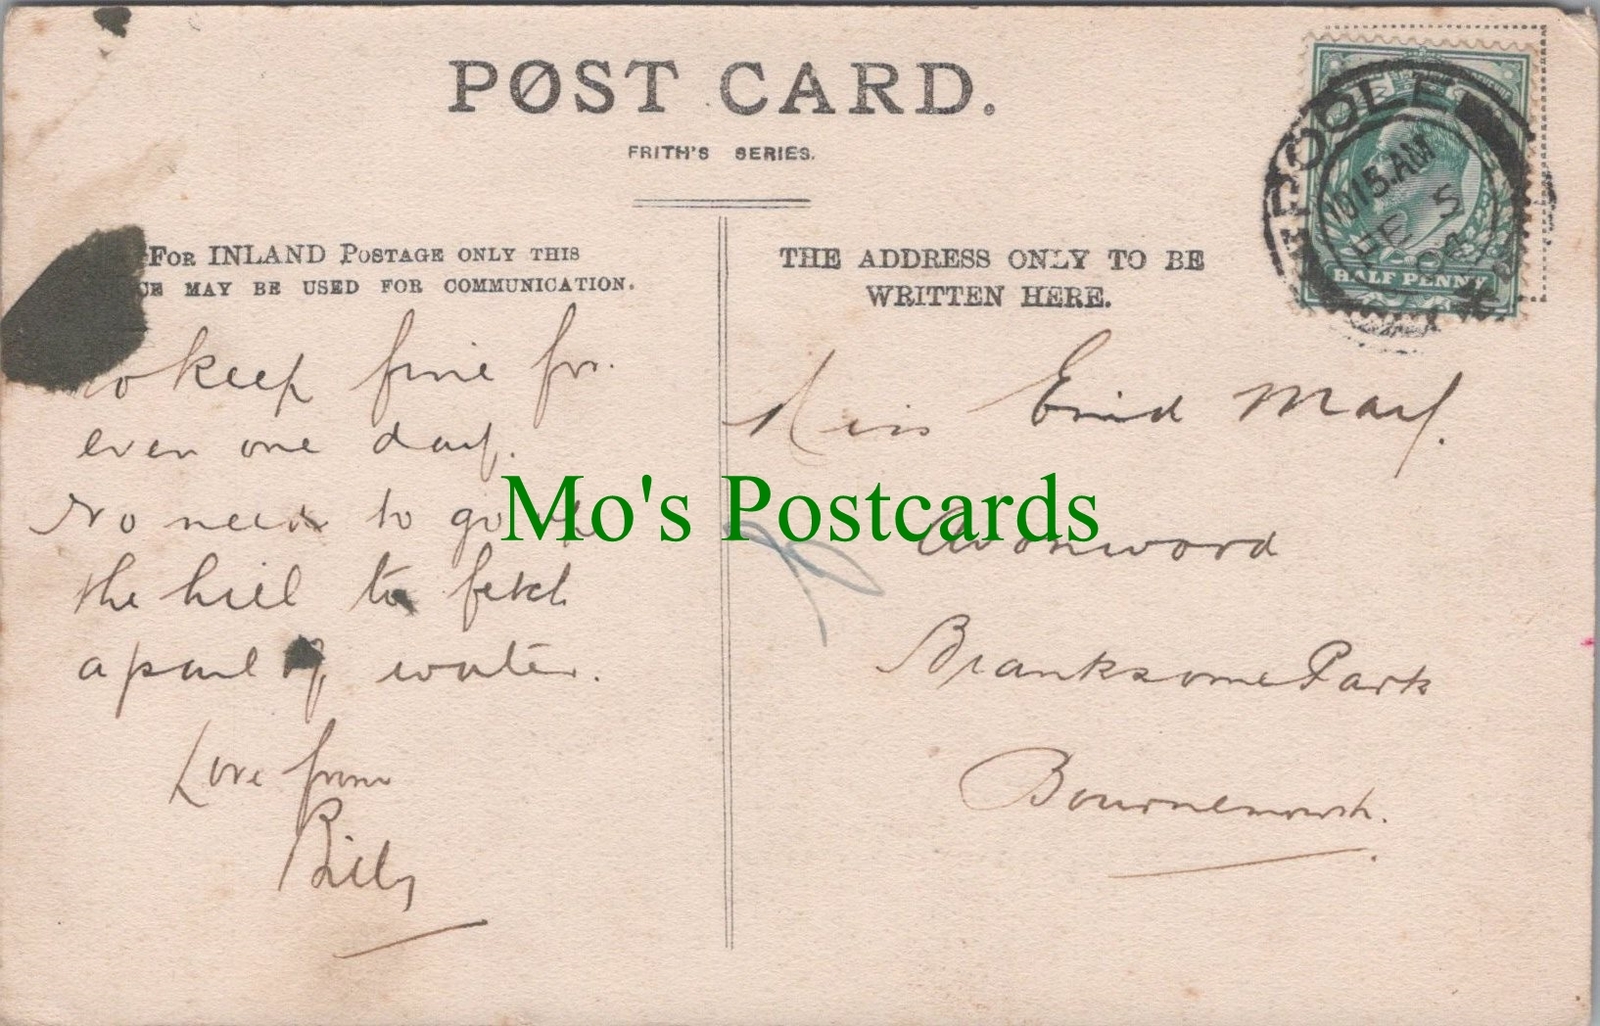 POST CARD.
FRITH'S SERIES.
FOR INLAND POSTAGE ONLY THIS
CE MAY BE USED FOR COMMUNICATION.
to keep fine for
even one day.
No need to go
the hill to fetch
a pail of water.
Love from
Billy
THE ADDRESS ONLY TO BE
WRITTEN HERE.
Miss Enid May.
Avonword
Branksome Park
Bournemouth.
POOLE
1015.AM
DE 5
04
HALF PENNY
Mo's Postcards